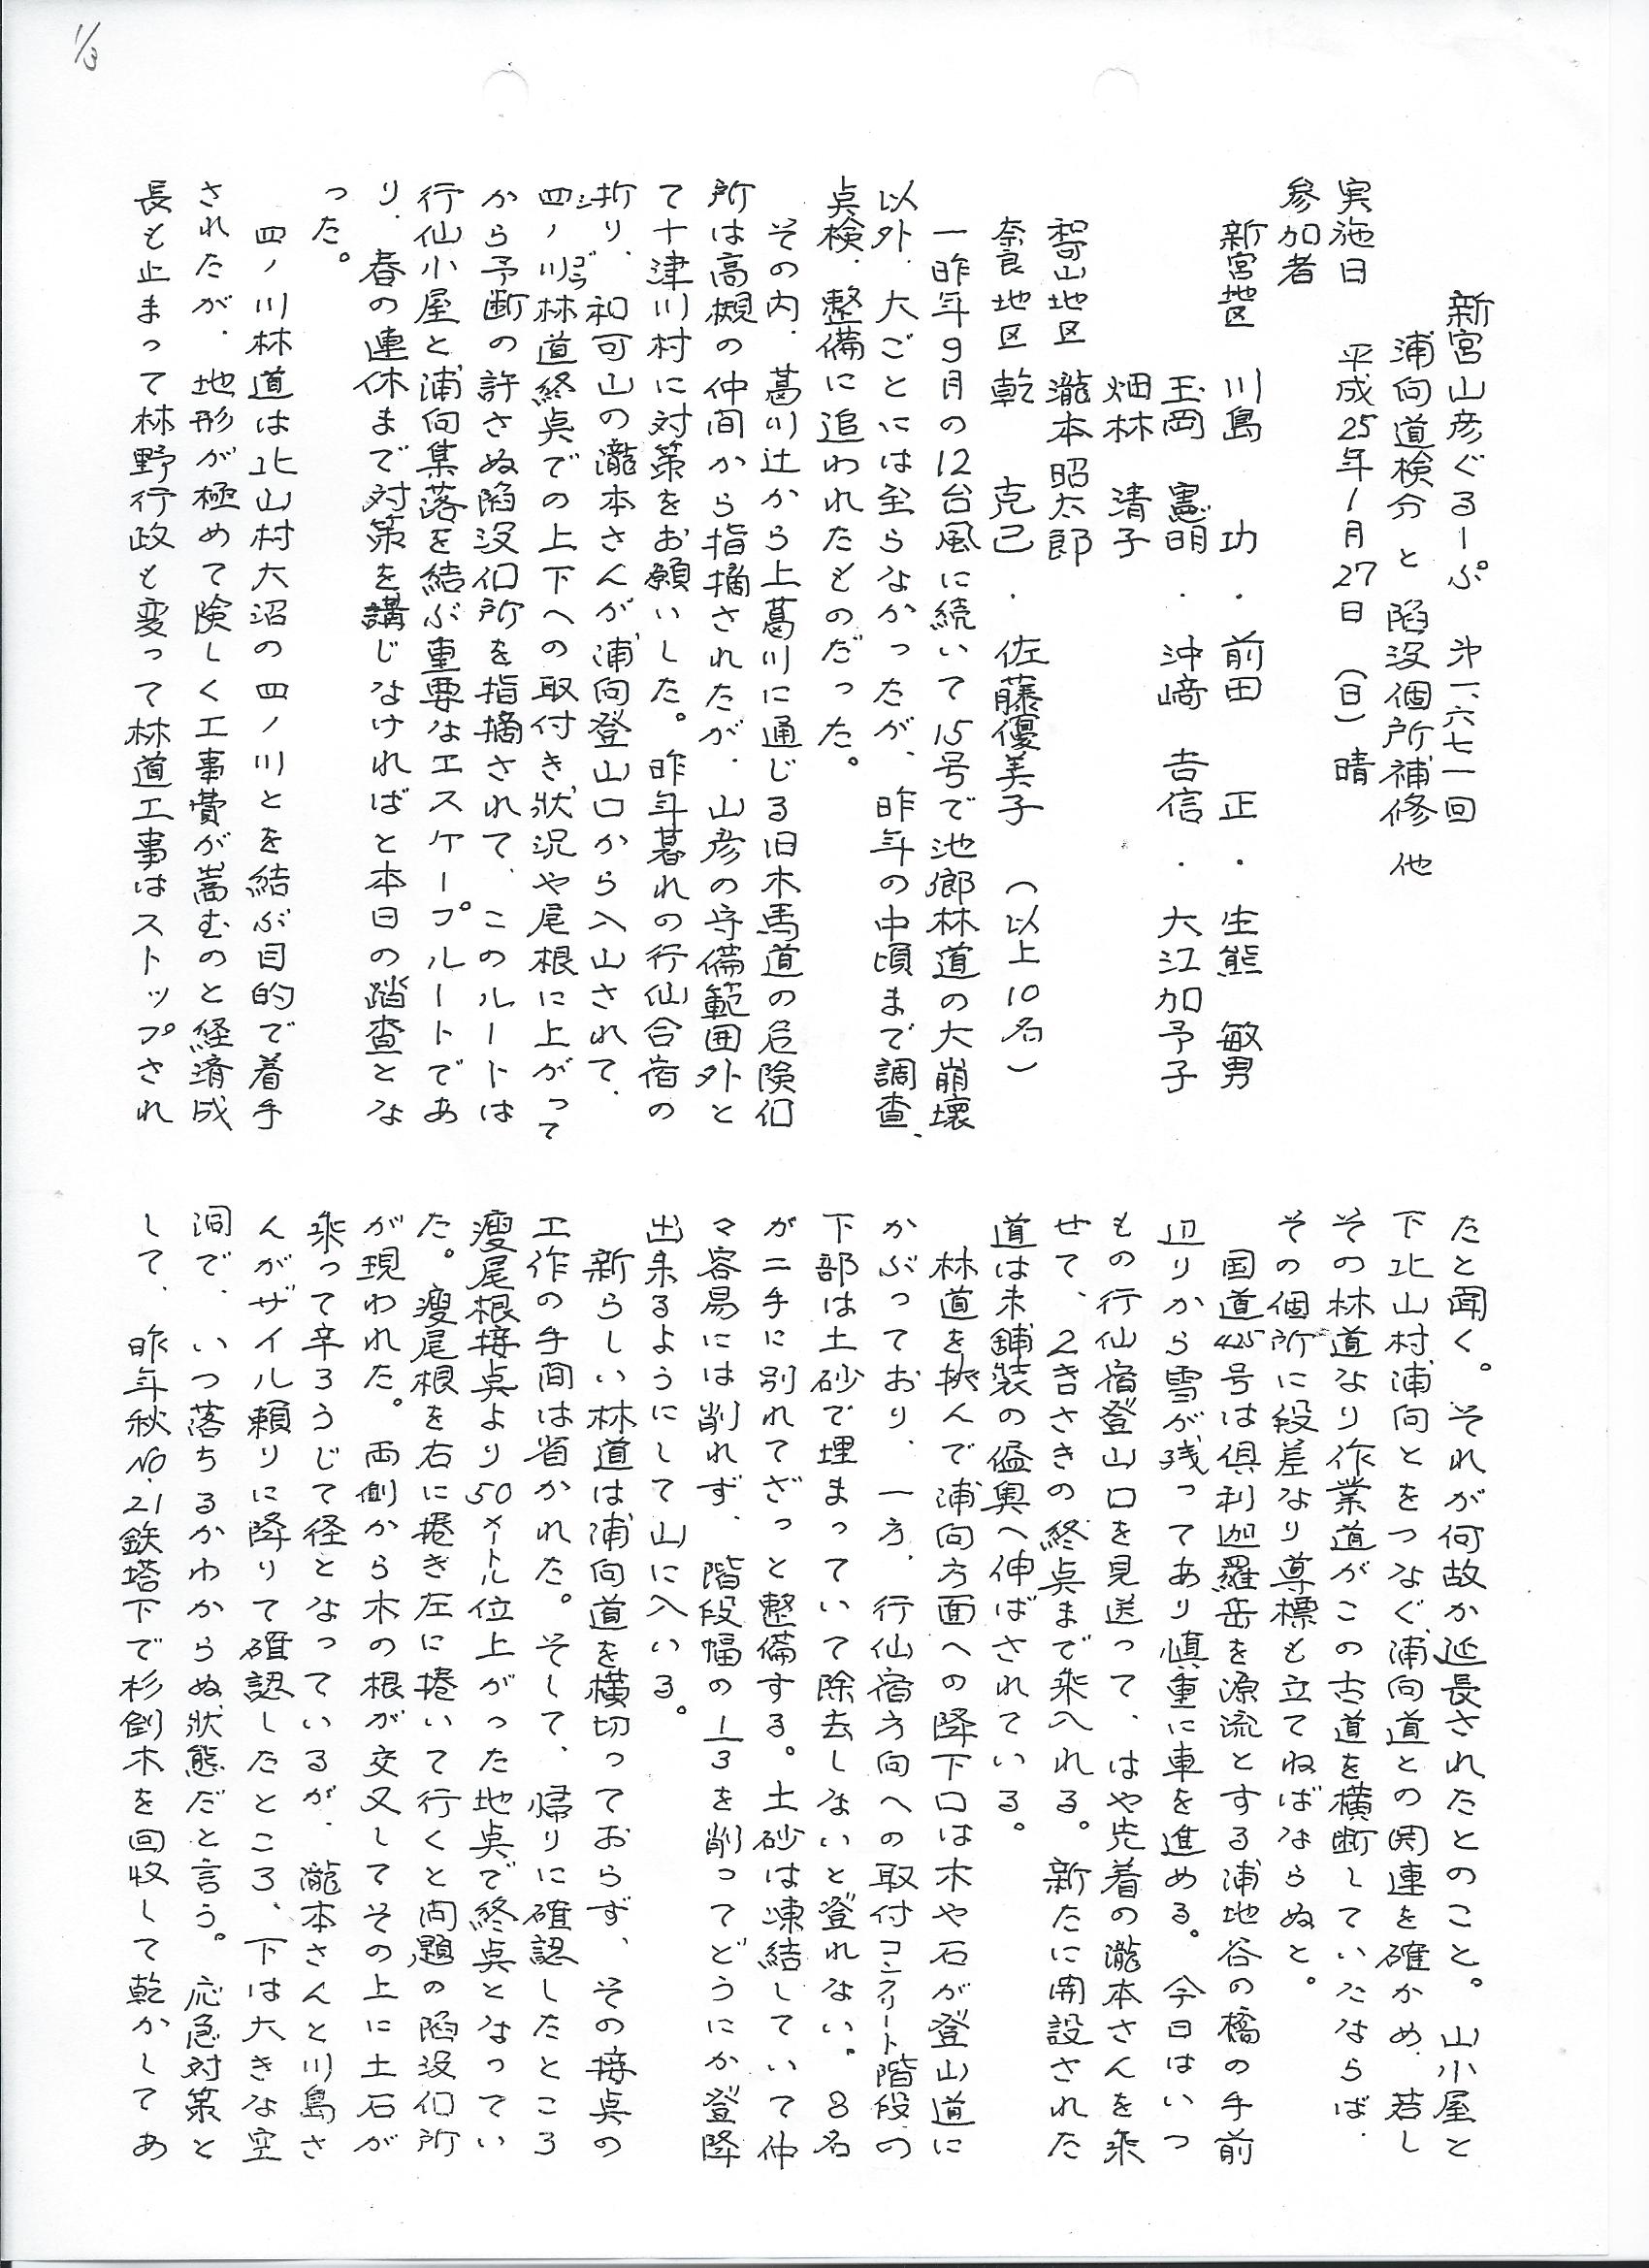 1/3
新宮山彦ぐるーぷ 第一六七一回
浦向道検分 と 陥没個所補修 他
実施日 平成25年1月27日 (日) 晴
参加者
新宮地区 川島 功 . 前田 正 . 生熊 敏男
玉岡 憲明 . 沖﨑 吉信 . 大江加予子
畑林 清子
和歌山地区 瀧本昭太郎
奈良地区 乾 克己 . 佐藤優美子 (以上10名)
一昨年9月の12台風に続いて15号で池郷林道の大崩壊
以外、大ごとには至らなかったが、昨年の中頃まで調査、
点検、整備に追われたものだった。
その内、葛川辻から上葛川に通じる旧木馬道の危険们
所は高槻の仲間から指摘されたが、山彦の守備範囲外と
て十津川村に対策をお願いした。昨年暮れの行仙合宿の
折り、和可山の瀧本さんが浦向登山口から入山されて、
四ノ川林道終点での上下への取付き状況や尾根に上がって
から予断の許さぬ陥没们所を指摘されて、このルートは
行仙小屋と浦向集落を結ぶ重要なエスケープルートであ
り、春の連休まで対策を講じなければと本日の踏査とな
った。
四ノ川林道は北山村大沼の四ノ川とを結ぶ目的で着手
されたが、地形が極めて険しく工事費が嵩むのと経済成
長も止まって林野行政も変って林道工事はストップされ
たと聞く。それが何故か延長されたとのこと。山小屋と
下北山村浦向とをつなぐ浦向道との関連を確かめ、若し
その林道なり作業道がこの古道を横断していたならば、
その個所に段差なり導標も立てねばならぬと。
国道425号は倶利迦羅岳を源流とする浦地谷の橋の手前
辺りから雪が残ってあり慎重に車を進める。今日はいつ
もの行仙宿登山口を見送って、はや先着の瀧本さんを乗
せて、2きさきの終点まで乗入れる。新たに開設された
道は未舗装の侭奥へ伸ばされている。
林道を挟んで浦向方面への降下口は木や石が登山道に
かぶっており、一方、行仙宿方向への取付コンクリート階段の
下部は土砂で埋まっていて除去しないと登れない。8名
が二手に別れてざっと整備する。土砂は凍結していて仲
々容易には削れず、階段幅の1/3を削ってどうにか登降
出来るようにして山に入いる。
新らしい林道は浦向道を横切っておらず、その接点の
工作の手間は省かれた。そして、帰りに確認したところ
瘦尾根接点より50メートル位上がった地点で終点となってい
た。瘦尾根を右に捲き左に捲いて行くと問題の陥没们所
が現われた。両側から木の根が交叉してその上に土石が
乗って辛ろうじて径となっているが、瀧本さんと川島さ
んがザイル頼りに降りて確認したところ、下は大きな空
洞で、いつ落ちるかわからぬ状態だと言う。応急対策と
して、昨年秋No.21鉄塔下で杉倒木を回収して乾かしてあ